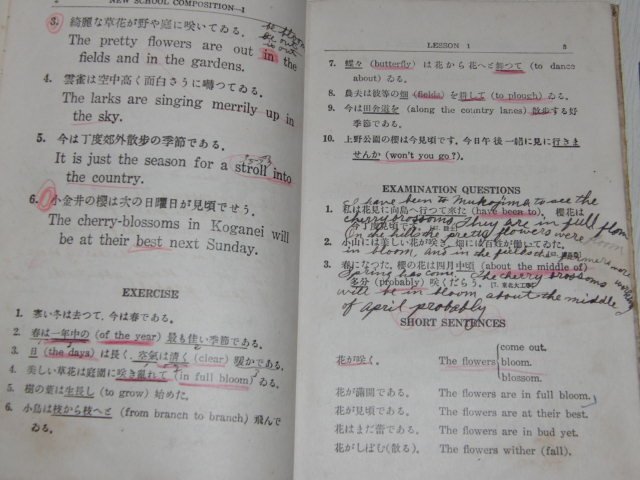 NEW SCHOOL COMPOSITION—I
3. 綺麗な草花が野や庭に咲いてゐる。
The pretty flowers are out in the
fields and in the gardens.
4. 雲雀は空中高く面白さうに囀つてゐる。
The larks are singing merrily up in
the sky.
5. 今は丁度郊外散歩の季節である。
It is just the season for a stroll into
the country.
6. 小金井の櫻は次の日曜日が見頃でせう。
The cherry-blossoms in Koganei will
be at their best next Sunday.
EXERCISE
1. 寒い冬は去つて、今は春である。
2. 春は一年中の (of the year) 最も佳い季節である。
3. 日 (the days) は長く、空氣は清く (clear) 暖かである。
4. 美しい草花は庭園に咲き亂れて (in full bloom) ゐる。
5. 樹の葉は生長し (to grow) 始めた。
6. 小鳥は枝から枝へと (from branch to branch) 飛んで
ゐる。
LESSON 1
3
7. 蝶々 (butterfly) は花から花へと舞つて (to dance
about) ゐる。
8. 農夫は彼等の畑 (fields) を耕して (to plough) ゐる。
9. 今は田舎道を (along the country lanes) 散歩する好
季節である。
10. 上野公園の櫻は今見頃です。今日午後一緒に見に行きま
せんか (won't you go?).
EXAMINATION QUESTIONS
I have been to Mukojima to see the
1. 私は花見に向島へ行つて來た (have been to). 櫻花は
cherry brossoms. They are in full
今丁度見頃
On the hills the pretty flowers were
2. 小山には美しい花が咲き、畑には百姓が働いてゐた。
in bloom, and in the fields the farmers were
3. 春になつた。櫻の花は四月中頃 (about the middle of)
Spring has come. The cherry brossoms
多分 (probably) 咲くだらう。
will be in bloom about the middle
of april probably
SHORT SENTENCES
花が咲く。 The flowers come out.
bloom.
blossom.
花が滿開である。 The flowers are in full bloom.
花が見頃である。 The flowers are at their best.
花はまだ蕾である。 The flowers are in bud yet.
花がしぼむ(散る)。 The flowers wither (fall).